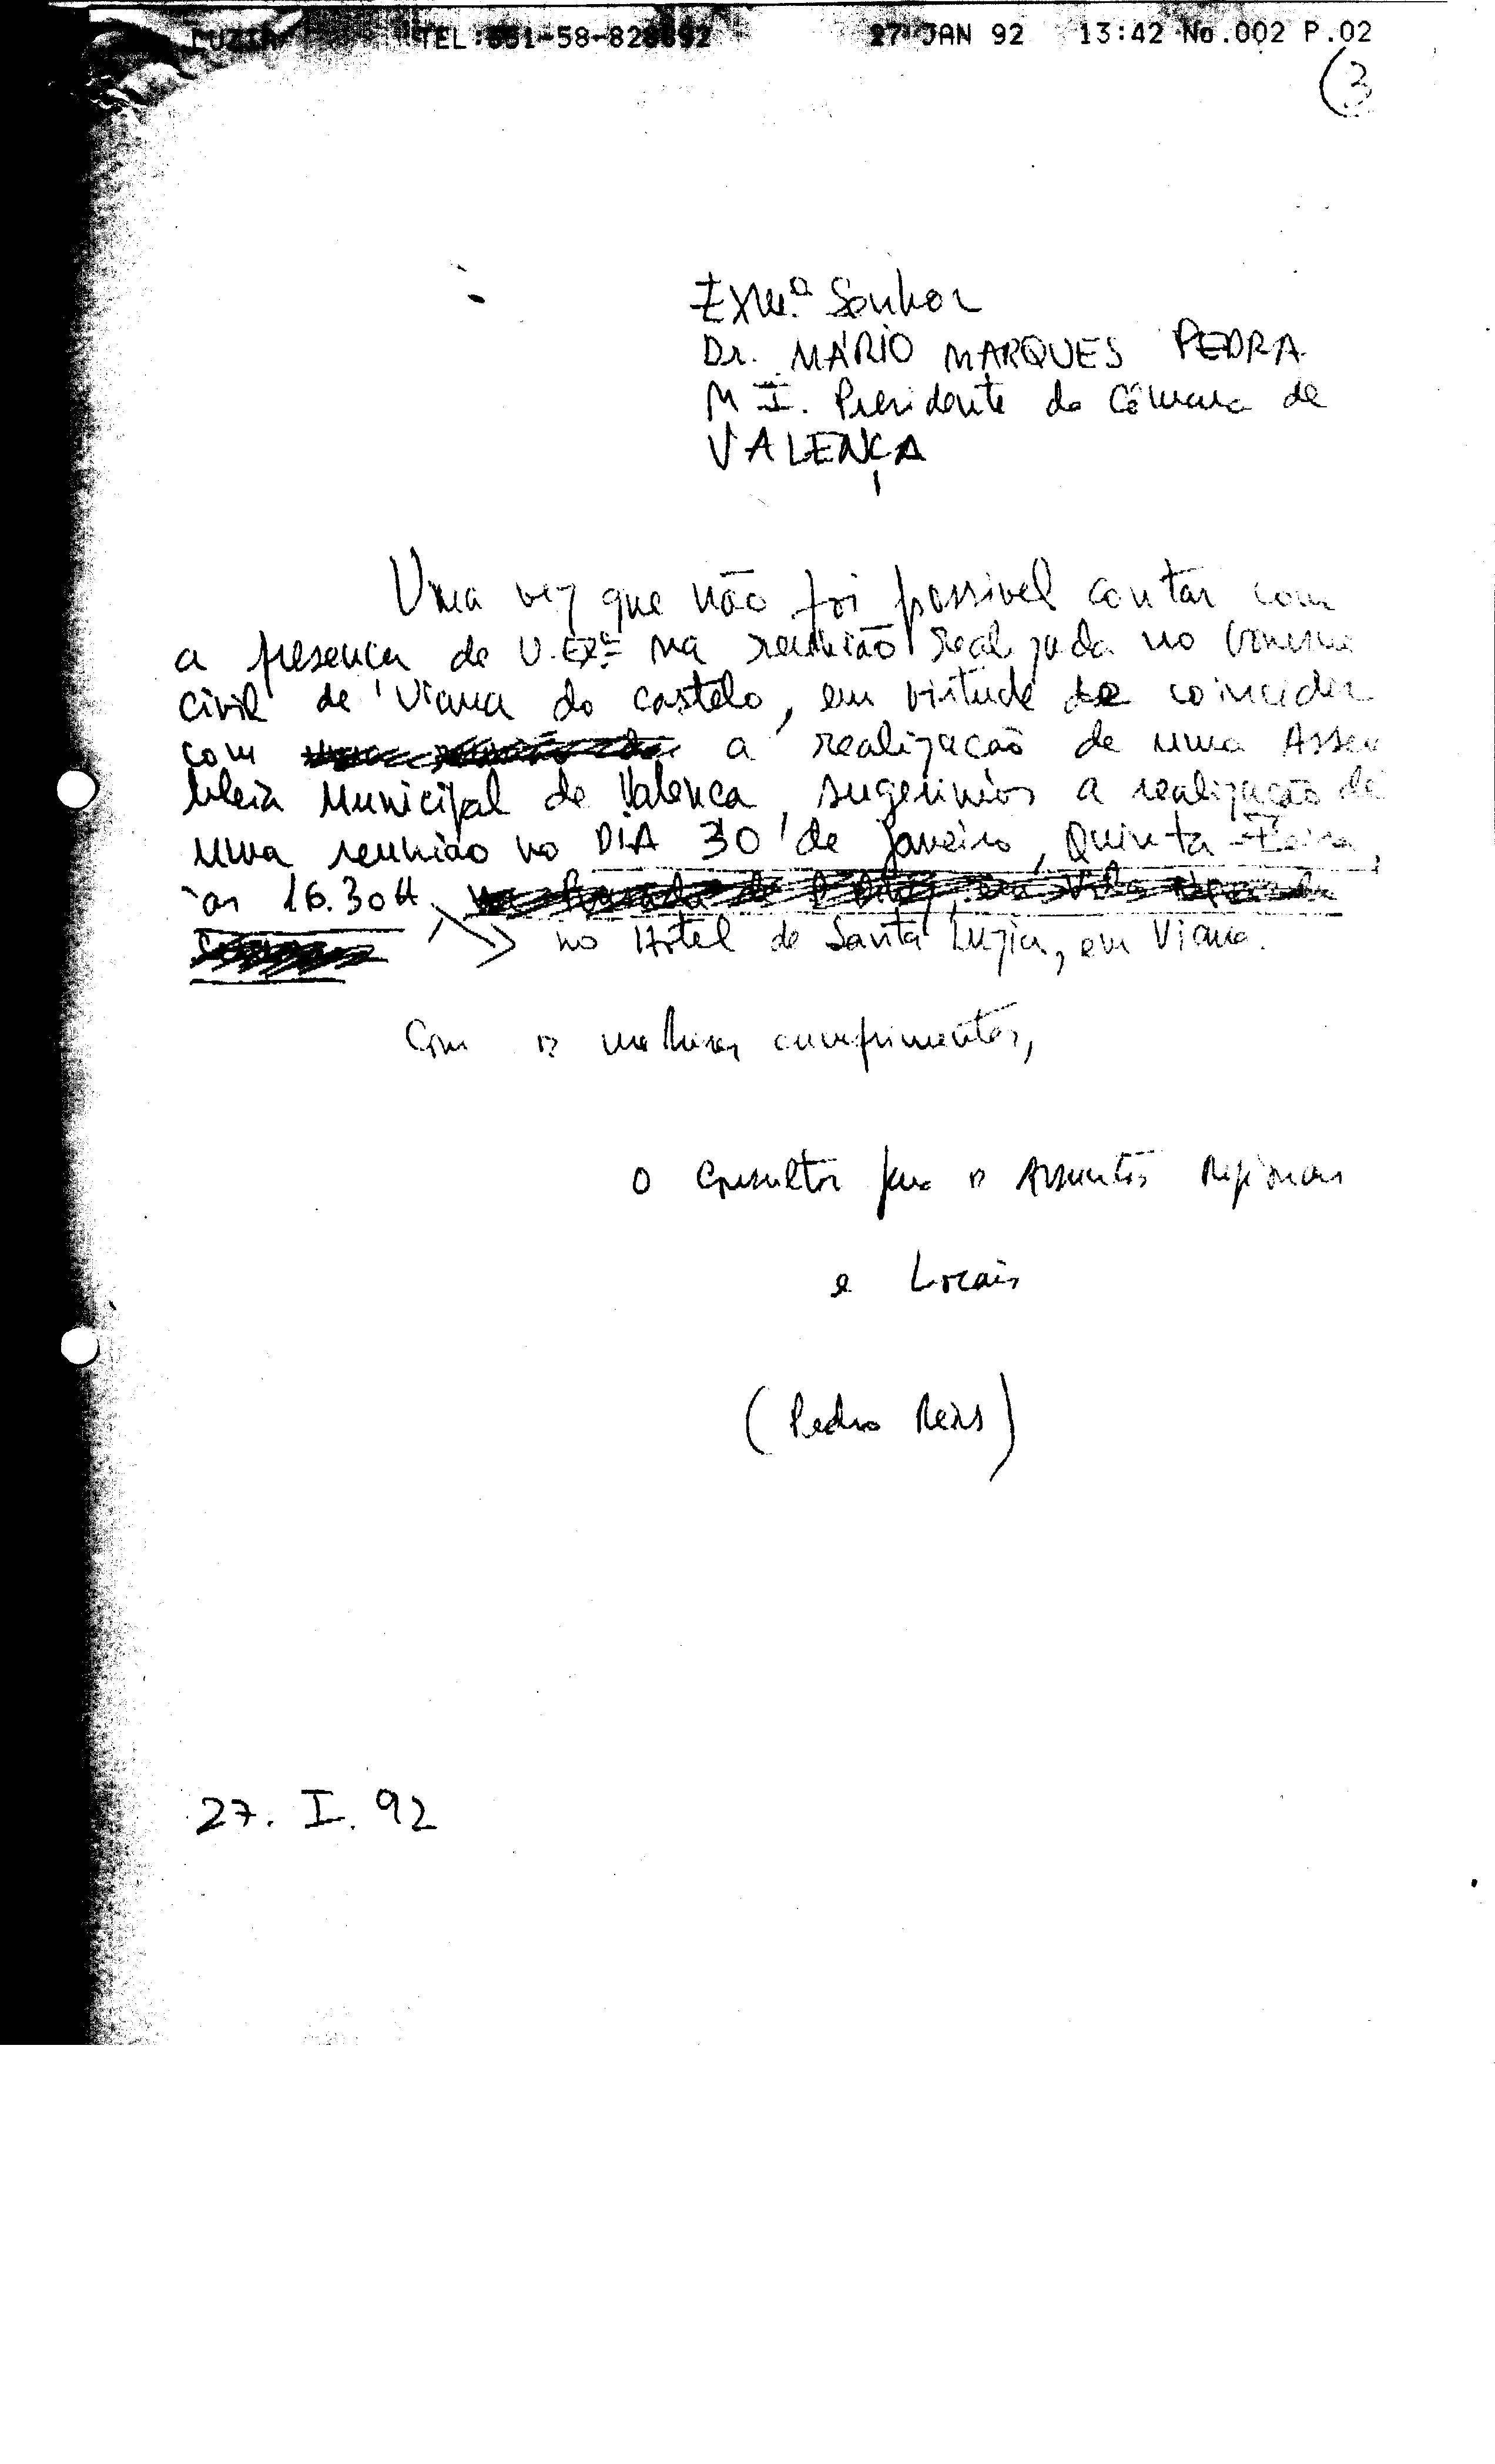 LUZIA TEL:351-58-828892 27 JAN 92 13:42 No.002 P.02
(3
Exmº Senhor
Dr. MÁRIO MARQUES PEDRA
M I. Presidente da Câmara de
VALENÇA
Uma vez que não foi possivel contar com
a presença de V. Exª na reunião realizada no Governo
Civil de Viana do Castelo, em virtude de coincidir
com a realização de uma Assem
bleia Municipal de Valença, sugerimos a realização de
uma reunião no DIA 30 de Janeiro, Quinta-Feira,
às 16.30H
no Hotel de Santa Luzia, em Viana.
Com os melhores cumprimentos,
O Consultor para os Assuntos Regionais
e Locais
(Pedro Reis)
27. I. 92